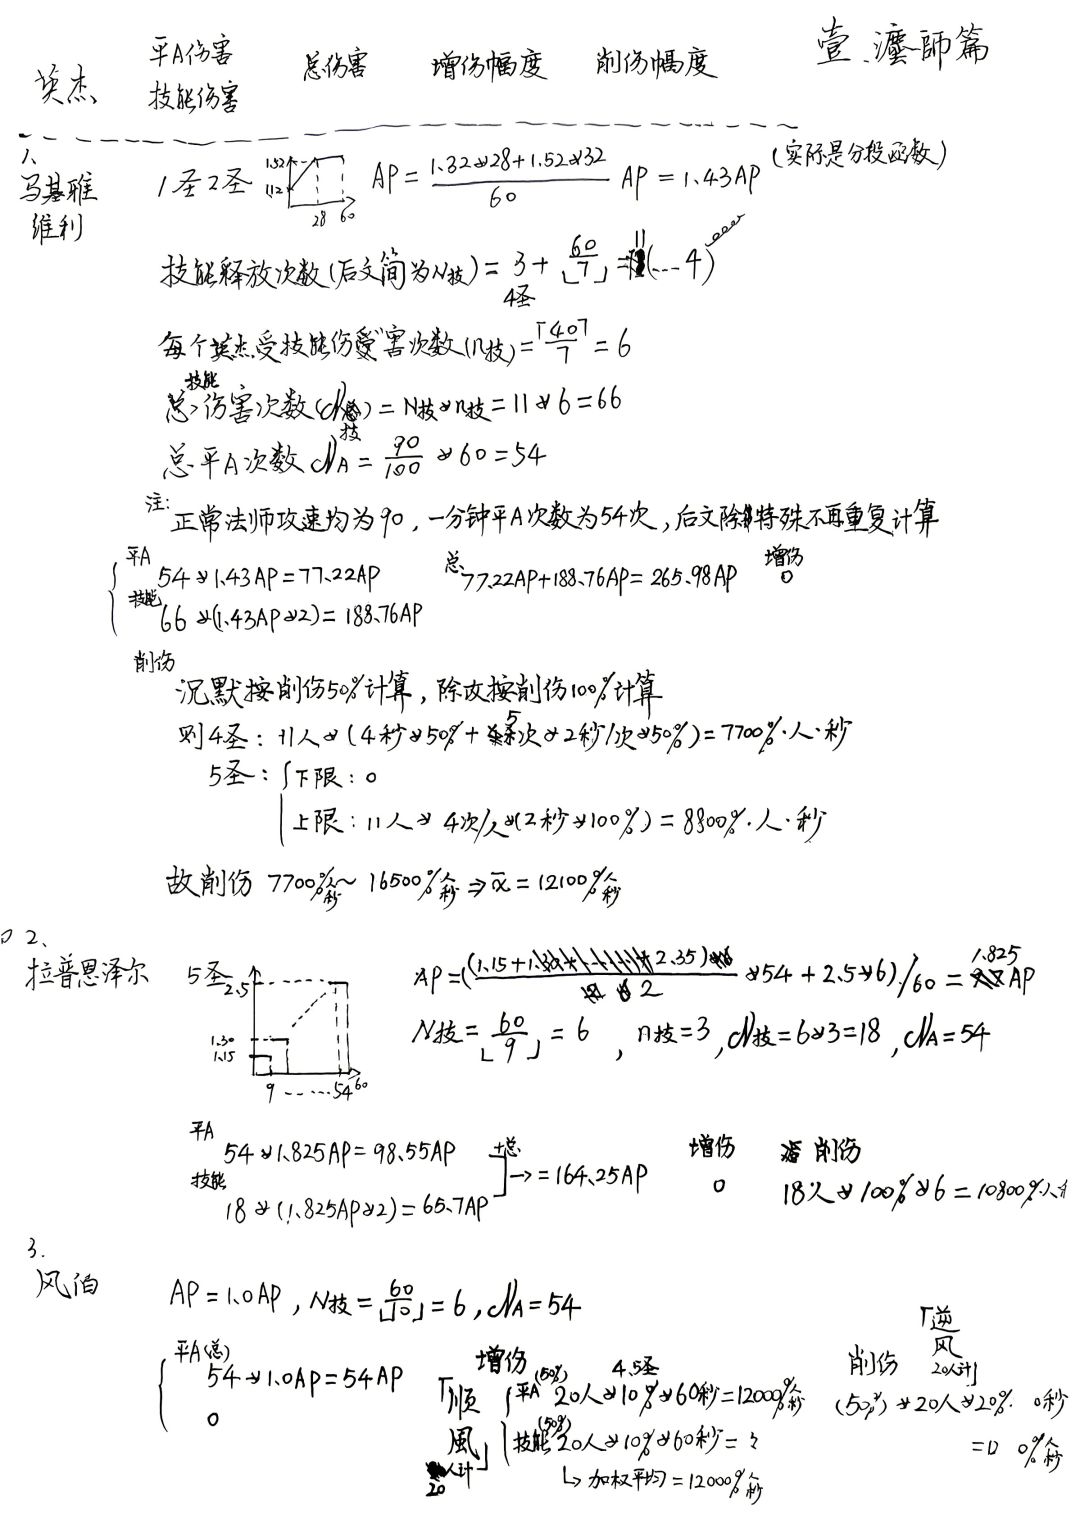 壹.瀍師篇
英杰 平A伤害 技能伤害 总伤害 增伤幅度 削伤幅度
1、
马基雅维利
1圣2圣
1.52
1.12
28 60
AP = (1.32×28+1.52×32)/60 AP = 1.43AP (实际是分投函数)
技能释放次数(后文简为N技) = 3 + ⌊60/7⌋ = 11 (…4)
4圣
每个英杰受技能伤害次数(n技) = ⌈40/7⌉ = 6
总技能伤害次数(N总技) = N技×n技 = 11×6 = 66
总平A次数 NA = 90/100 × 60 = 54
注: 正常法师攻速均为90, 一分钟平A次数为54次, 后文除特殊不再重复计算
平A 54×1.43AP = 77.22AP
技能 66×(1.43AP×2) = 188.76AP
总 77.22AP+188.76AP = 265.98AP
增伤 0
削伤
沉默按削伤50%计算, 除攻按削伤100%计算
则4圣: 11人×(4秒×50% + 5次×2秒/次×50%) = 7700%·人·秒
5圣: 下限: 0
上限: 11人×4次/人×(2秒×100%) = 8800%·人·秒
故削伤 7700%人秒 ~ 16500%人秒 ⇒ x̄ = 12100%人秒
2、
拉普恩泽尔
5圣
2.5
1.30
1.15
9 …… 54 60
AP = ((1.15+2.35)/2 ×54 + 2.5×6)/60 = 1.825AP
N技 = ⌊60/9⌋ = 6, n技=3, N技=6×3=18, NA=54
平A 54×1.825AP = 98.55AP
技能 18×(1.825AP×2) = 65.7AP
总 → = 164.25AP
增伤 0
削伤 18人×100%×6 = 10800%·人
3.
风伯
AP = 1.0AP, N技 = ⌊60/10⌋ = 6, NA = 54
平A(总) 54×1.0AP = 54AP
0
增伤 4.5圣
「顺風」 20人计
平A(50%) 20人×10%×60秒 = 12000%人秒
技能(50%) 20人×10%×60秒 = 2
↳ 加权平均 = 12000%人秒
削伤 「逆风 20人计」
(50%)×20人×20%· 0秒
= 0%人秒